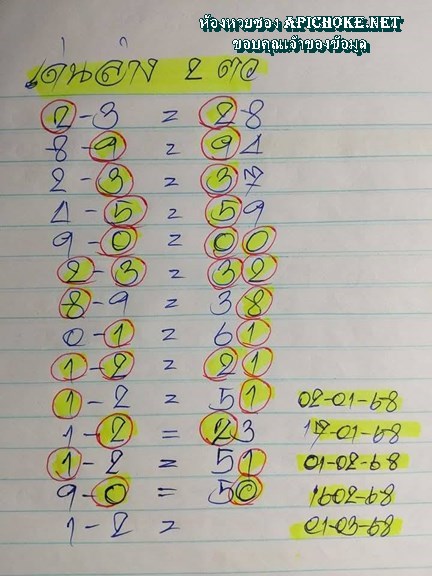 ห้องหวยซอง APICHOKE.NET
ขอบคุณเจ้าของข้อมูล
เด่นล่าง 2 ตัว
2-3 = 28
8-9 = 94
2-3 = 37
4-5 = 59
9-0 = 00
2-3 = 32
8-9 = 38
0-1 = 61
1-2 = 21
1-2 = 51 02-01-68
1-2 = 23 17-01-68
1-2 = 51 01-02-68
9-0 = 50 1602-68
1-2 = 01-03-68